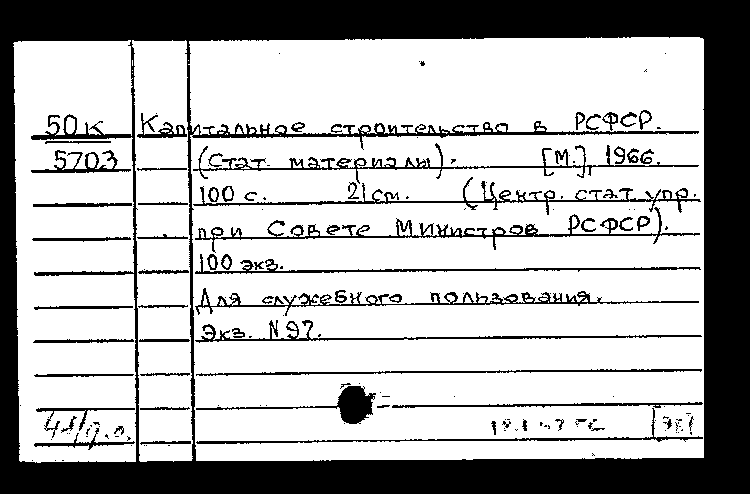 50к Капитальное строительство в РСФСР.
5703 (Стат. материалы). [М.], 1966.
100 с. 21 см. (Центр. стат. упр.
при Совете Министров РСФСР).
100 экз.
Для служебного пользования.
Экз. N 97.